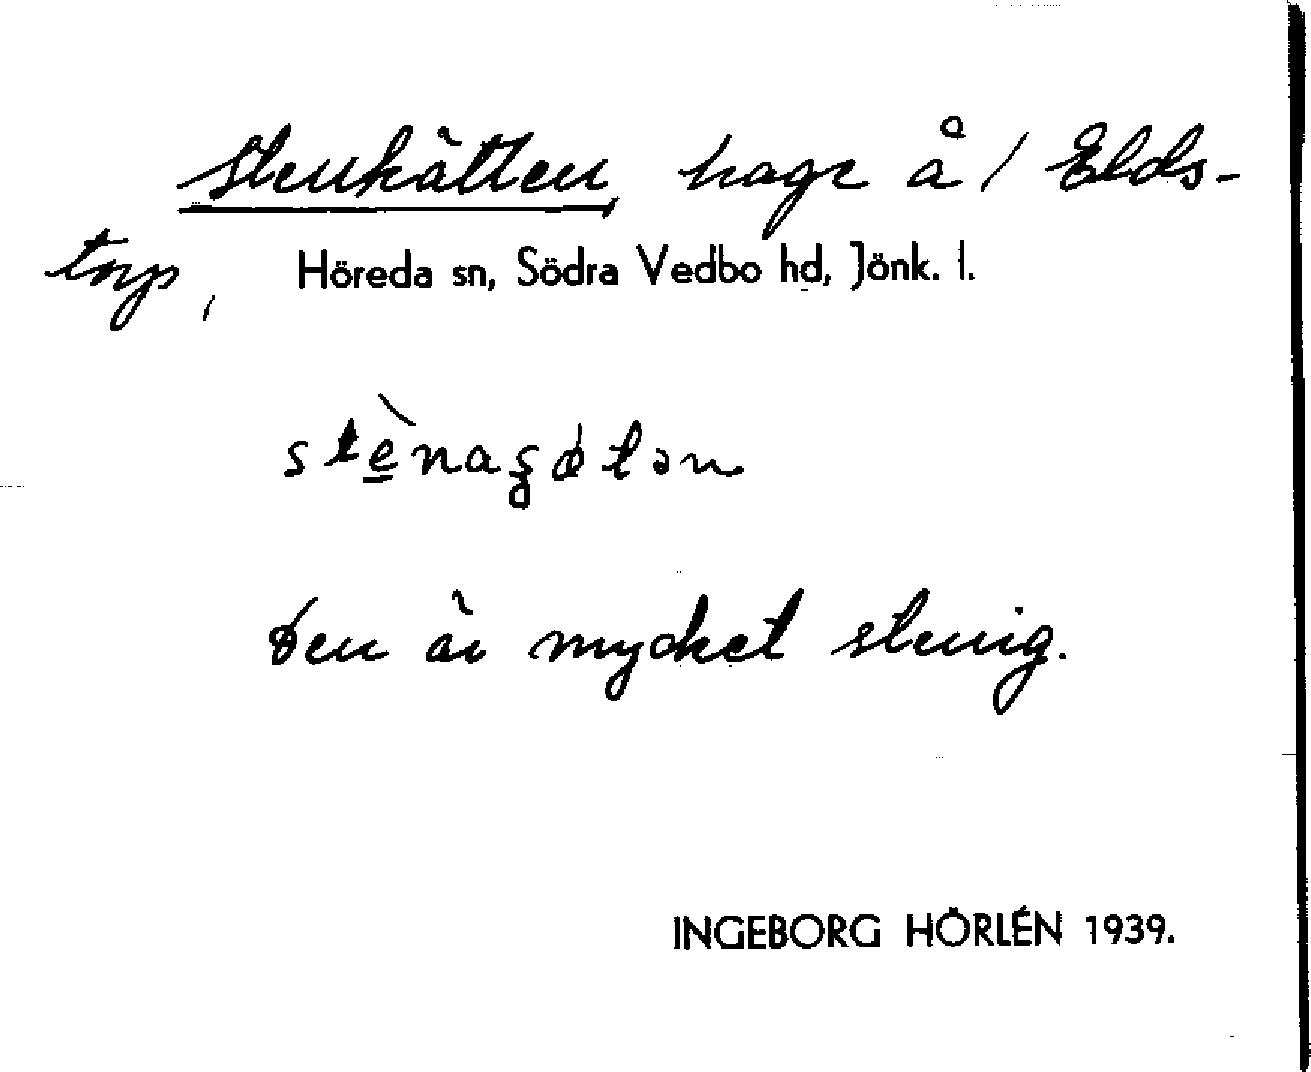 Stenkätten, hage å / Elds-
torp, Höreda sn, Södra Vedbo hd, Jönk. l.
Den är mycket stenig.
INGEBORG HÖRLÉN 1939.